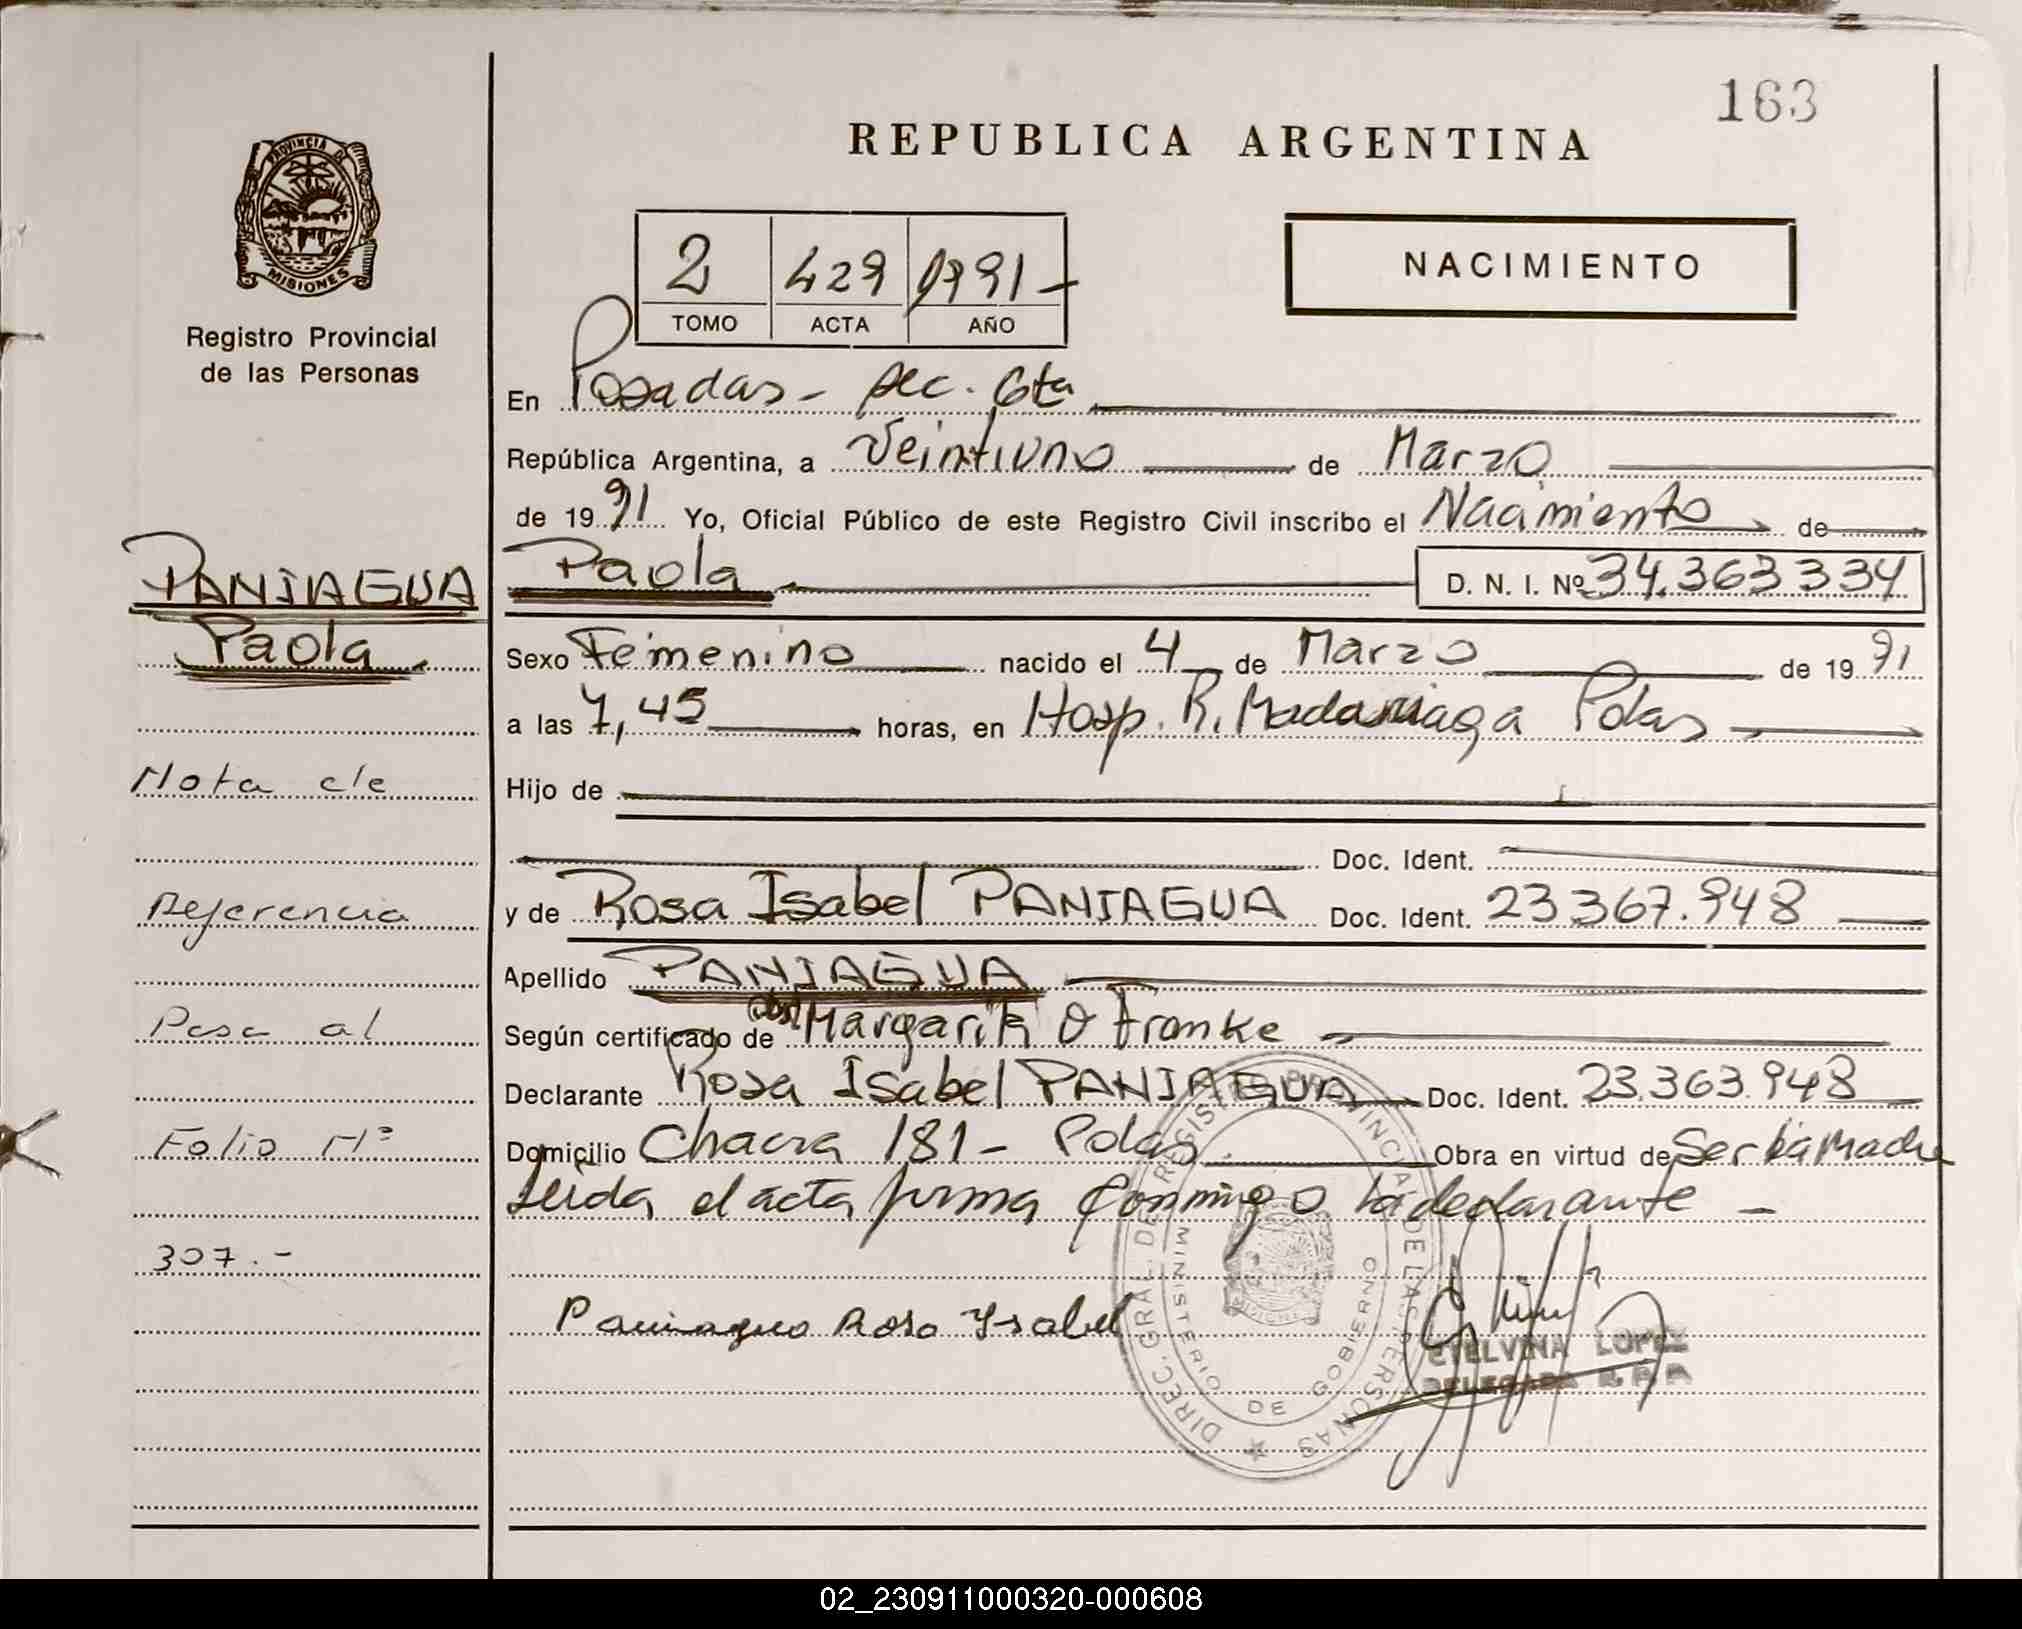 163
REPUBLICA ARGENTINA
PROVINCIA DE
MISIONES
Registro Provincial
de las Personas
2 429 1991-
TOMO ACTA AÑO
NACIMIENTO
En Posadas - Sec. 6ta
República Argentina, a Veintiuno de Marzo
de 1991 Yo, Oficial Público de este Registro Civil inscribo el Nacimiento de
Paola D. N. I. Nº 34.363.334
Sexo Femenino nacido el 4 de Marzo de 1991
a las 7,45 horas, en Hosp. R. Madariaga Pdas
Hijo de
Doc. Ident.
y de Rosa Isabel PANIAGUA Doc. Ident. 23.367.948
Apellido PANIAGUA
Según certificado de Obst. Margarita O Franke
Declarante Rosa Isabel PANIAGUA Doc. Ident. 23.363.948
Domicilio Chacra 181 - Pdas. Obra en virtud de Ser la Madre
Leida el acta firma conmigo la declarante -
Paniagua Rosa Ysabel
ETELVINA LOPEZ
DELEGADA R.P.P.
DIREC. GRAL. DE REGISTRO PROVINCIAL DE LAS PERSONAS
MINISTERIO DE GOBIERNO
MISIONES
PANIAGUA
Paola
Nota de
Referencia
Pasa al
Folio Nº
307.-
02_230911000320-000608